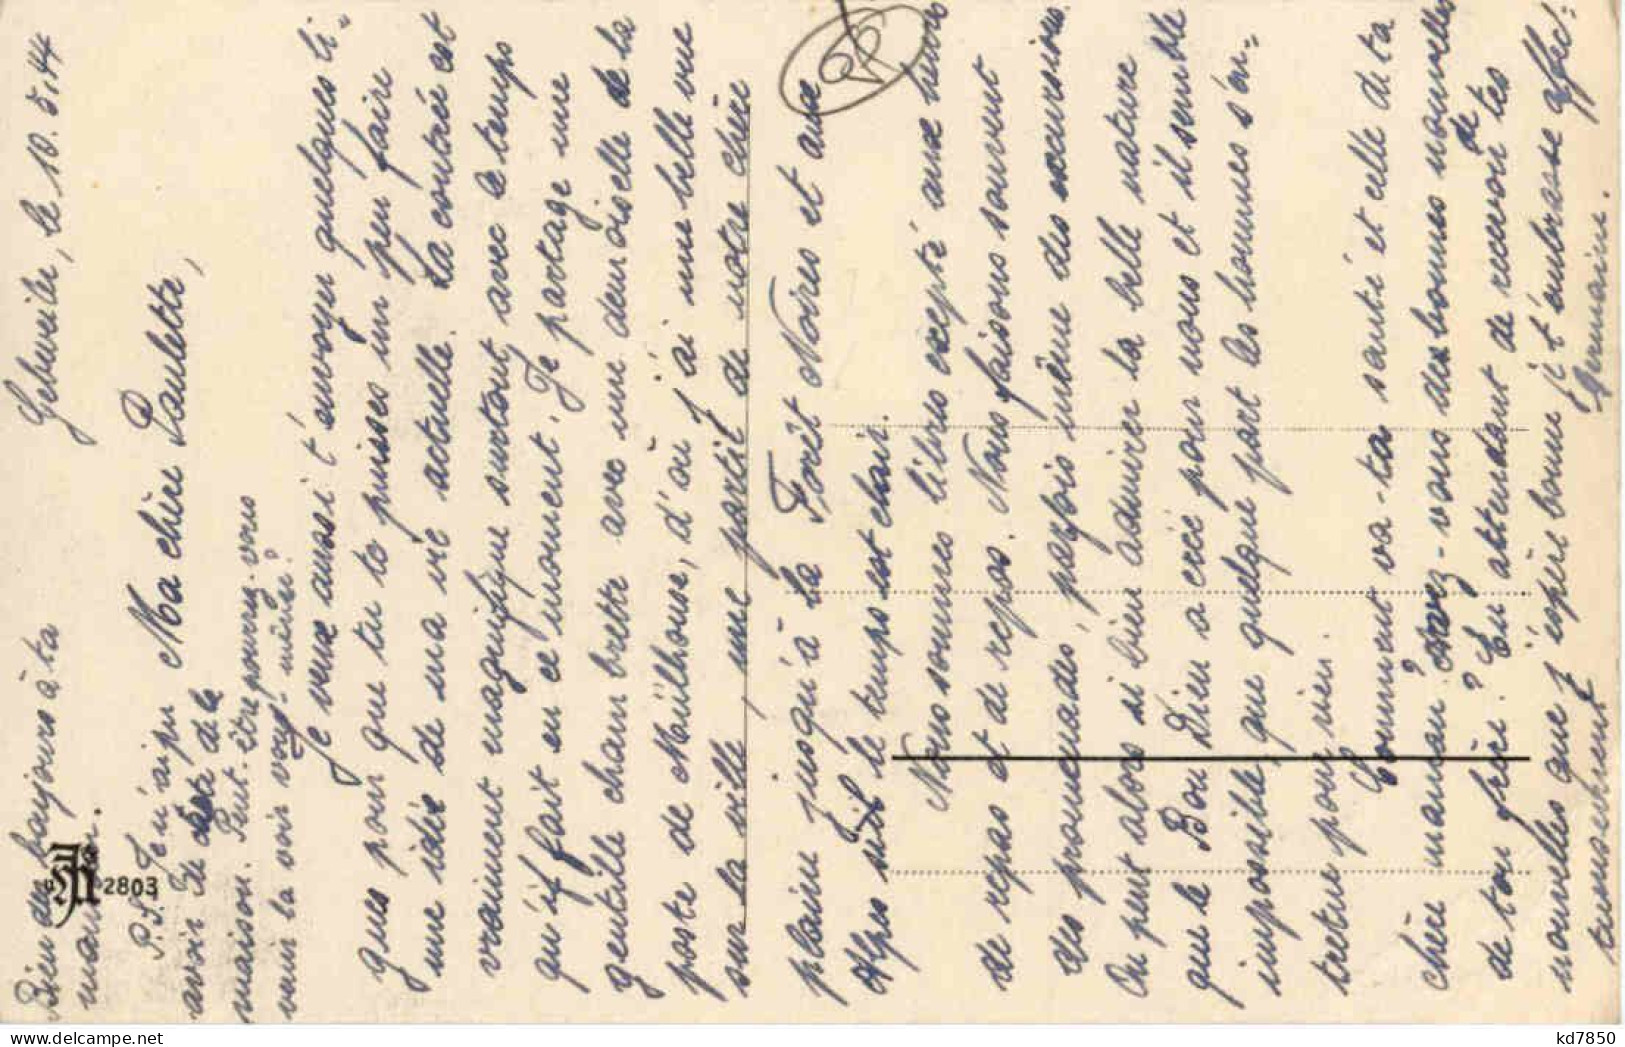 Gebweiler, le 10.5.44
Ma chère Paulette,
Je veux aussi t'envoyer quelques li=
gnes pour que tu te puisses un peu faire
une idée de ma vie actuelle. La contrée est
vraiment magnifique surtout avec le temps
qu'il fait en ce moment. Je partage une
gentille chambrette avec une demoiselle de la
poste de Mülhouse, d'où j'ai une belle vue
sur la ville, une partie de notre chère
plaine jusqu'à la Forêt Noires et aux
Alpes si le temps est clair.
Nous sommes libres excepté aux heures
de repas et de repos. Nous faisons souvent
des promenades, parfois même des excursions.
On peut alors si bien admirer la belle nature
que le Bon Dieu a créé pour nous et il semble
impossible, que quelque part les hommes s'en=
tretue pour rien.
Comment va-ta santé et celle de ta
chère maman? Avez-vous des bonnes nouvelles
de ton frère? En attendant de recevoir de tes
nouvelles que j'espère bonne je t'embrasse affec=
tueusement
Germaine.
Bien des bonjours à ta
maman.
P.S. Je n'ai pu
avoir de la
maison. Peut-être pourrez-vous
venir la voir vous-même?
2803
PR
kd7850